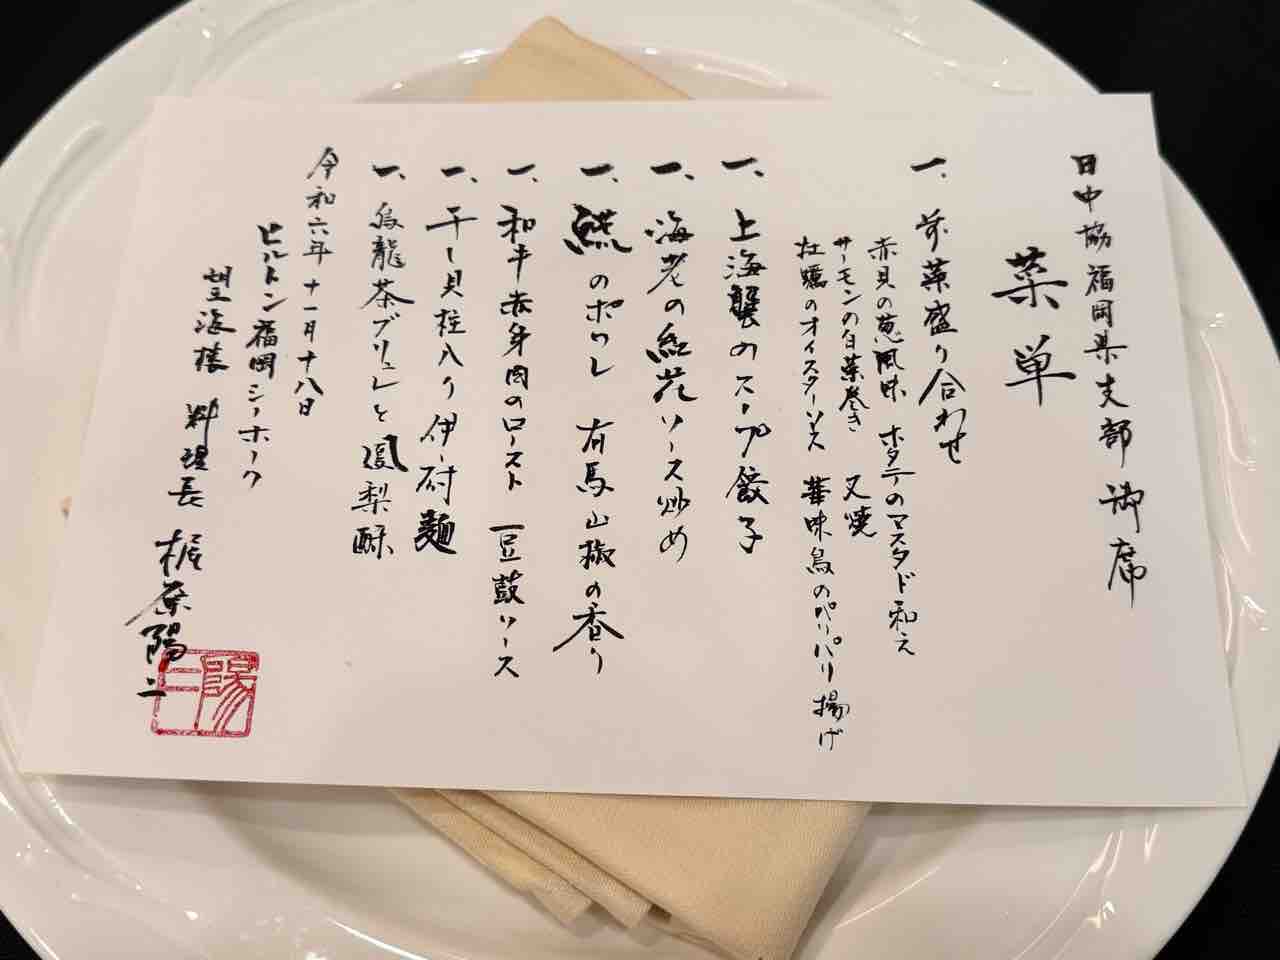 日中協 福岡県支部 御席
菜単
一、前菜盛り合わせ
赤貝の葱風味 ホタテのマスタード和え
サーモンの白菜巻き 叉焼
牡蠣のオイスターソース 華味鳥のパリパリ揚げ
一、上海蟹のスープ餃子
一、海老の紅花ソース炒め
一、のポワレ 有馬山椒の香り
一、和牛赤身肉のロースト 豆鼓ソース
一、干し貝柱入り伊府麺
一、烏龍茶ブリュレと鳳梨酥
令和六年十一月十八日
ヒルトン福岡シーホーク
望海楼 料理長 梶原陽二
陽二